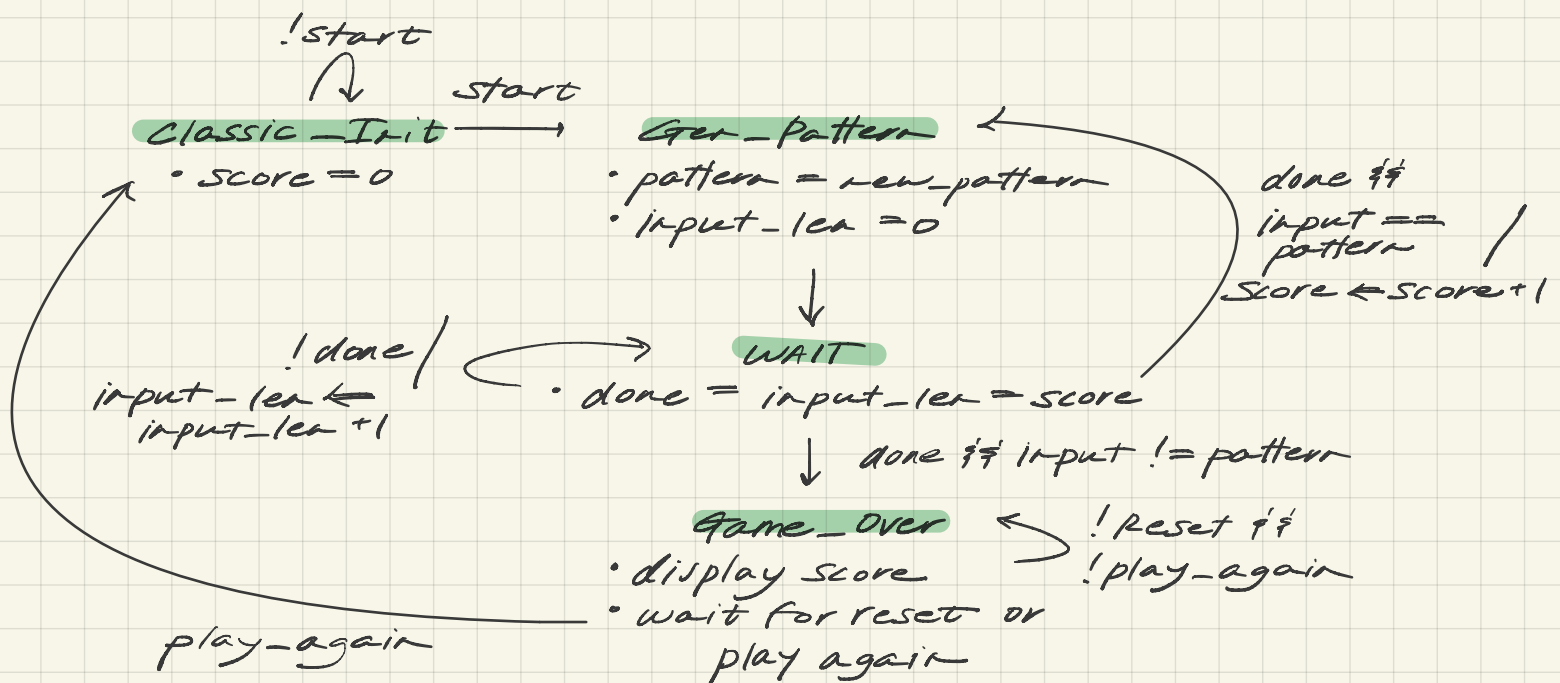 !start
start
Classic_Init
• score = 0
Gen_Pattern
• pattern = new_pattern
• input_len = 0
done &&
input ==
pattern /
score ⇐ score+1
!done /
input_len ⇐
input_len +1
WAIT
• done = input_len = score
done && input != pattern
Game_Over
• display score
• wait for reset or
play again
!Reset &&
!play_again
play_again